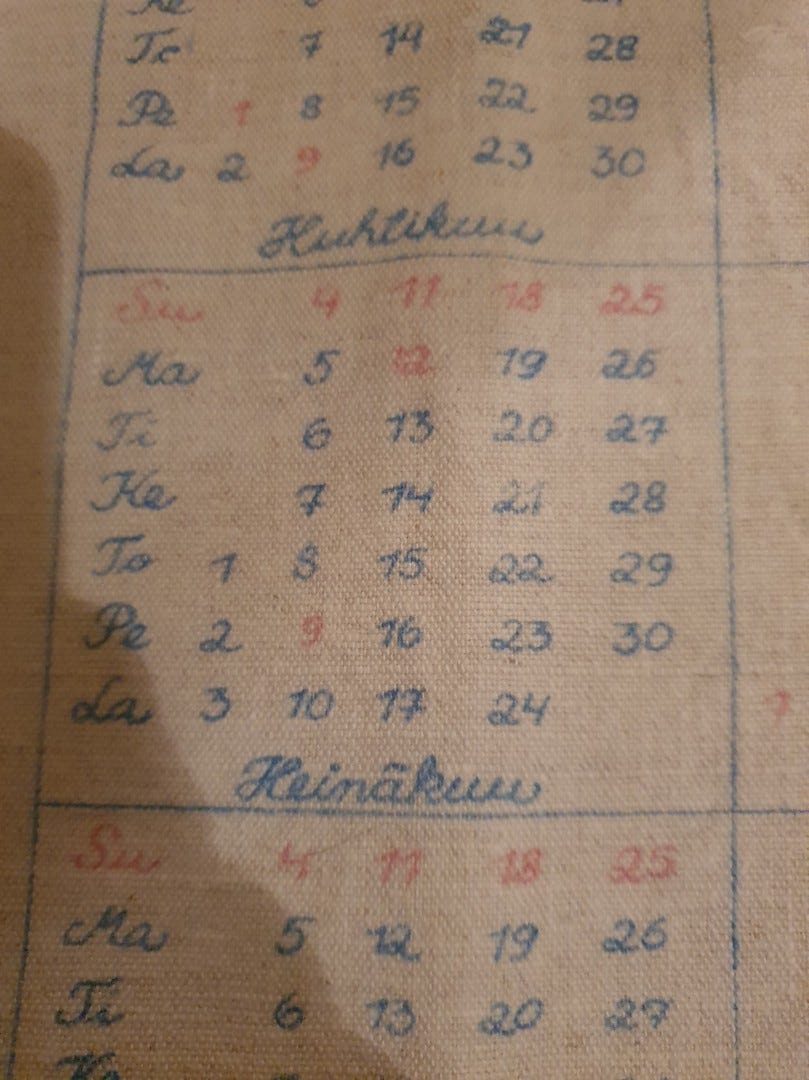 7 14 21 28
Pe 1 8 15 22 29
La 2 9 16 23 30
Huhtikuu
Su 4 11 18 25
Ma 5 12 19 26
Ti 6 13 20 27
Ke 7 14 21 28
To 1 8 15 22 29
Pe 2 9 16 23 30
La 3 10 17 24
1
Heinäkuu
Su 4 11 18 25
Ma 5 12 19 26
Ti 6 13 20 27